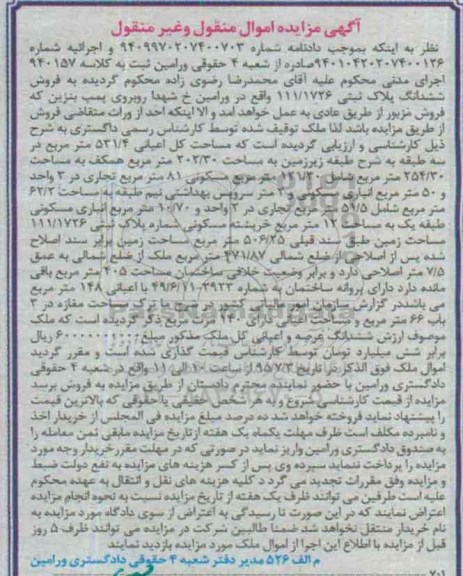 آگهی مزایده اموال منقول وغیر منقول
نظر به اینکه بموجب دادنامه شماره ۹۴۰۹۹۷۰۲۰۷۴۰۰۷۰۳ و اجرائیه شماره
۹۴۰۱۰۴۲۰۲۰۷۴۰۰۱۳۶صادره از شعبه ۴ حقوقی ورامین ثبت به کلاسه ۹۴۰۱۵۷
اجرای مدنی محکوم علیه آقای محمدرضا رضوی زاده محکوم گردیده به فروش
ششدانگ پلاک ثبتی ۱۱۱/۱۷۲۶ واقع در ورامین خ شهدا روبروی پمپ بنزین که
فروش مزبور از طریق عادی به عمل خواهد آمد و الا اینکه احد از وراث متقاضی فروش
از طریق مزایده باشد لذا ملک توقیف شده توسط کارشناس رسمی دادگستری به شرح
ذیل کارشناسی و ارزیابی گردیده است که مساحت کل اعیانی ۵۳۱/۴ متر مربع در
سه طبقه به شرح طبقه زیرزمین به مساحت ۲۰۲/۳۰ متر مربع همکف به مساحت
۲۵۴/۳۰ متر مربع شامل ۱۲۱/۲۰ متر مربع مسکونی ۸۱ متر مربع تجاری در ۳ واحد
و ۵۰ متر مربع انباری مسکونی و ۲ متر سرویس بهداشتی نیم طبقه به مساحت ۶۲/۲
متر مربع شامل متر مربع تجاری در ۳ واحد و ۱۰/۷۰ متر مربع انباری مسکونی
طبقه یک به مساحت ۱۲ متر مربع خرپشته مسکونی شماره پلاک ثبتی ۱۱۱/۱۷۲۶
مساحت زمین طبق سند قبلی ۵۰۶/۲۵ متر مربع مساحت زمین برابر سند اصلاح
شده پس از اصلاحی از ضلع شمالی ۴۷۱/۸۷ متر مربع ملک از ضلع شمالی به عمق
۷/۵ متر اصلاحی دارد و برابر وضعیت خلافی ساختمان مساحت ۴۰۵ متر مربع باقی
مانده دارد دارای پروانه ساختمان به شماره ۲۹۲۳-۴۹/۶/۱۱ با اعیانی ۱۴۸ متر مربع
می باشد در گزارش سازمان امور مالیاتی کشور در متراژ مساحت مغازه در ۳
باب ۶۶ متر مربع و مساحت اعیانی دارای متر مربع ذکر گردیده است که ملک
موصوف ارزش ششدانگ عرصه و اعیانی کل ملک مذکور مبلغ ریال
برابر شش میلیارد تومان توسط کارشناس قیمت گذاری شده است و مقرر گردید
اموال ملک فوق الذکر در تاریخ ۹۵/۷/۳ از ساعت ۱۰ الی ۱۱ واقع در شعبه ۴ حقوقی
دادگستری ورامین با حضور نماینده محترم دادستان از طریق مزایده به فروش برسد
مزایده از قیمت کارشناسی شروع و به هر شخص حقیقی یا حقوقی که بالاترین قیمت
را پیشنهاد نماید فروخته خواهد شد ده درصد مبلغ مزایده فی المجلس از خریدار اخذ
و نامبرده مکلف است ظرف مهلت یکماه یک هفته از تاریخ مزایده مابقی ثمن معامله را
به صندوق دادگستری ورامین واریز نماید در صورتی که در مهلت مقرر خریدار وجه مورد
مزایده را پرداخت ننماید سپرده وی پس از کسر هزینه های مزایده به نفع دولت ضبط
و مزایده وفق مقررات تجدید می گردد کلیه هزینه های نقل و انتقال به عهده محکوم
علیه است طرفین می توانند ظرف یک هفته از تاریخ مزایده نسبت به نحوه انجام مزایده
اعتراض نمایند که در این صورت تا رسیدگی به اعتراض از سوی دادگاه مورد مزایده به
نام خریدار منتقل نخواهد شد ضمنا طالبین شرکت در مزایده می توانند ظرف ۵ روز
قبل از مزایده با اطلاع این اجرا از اموال ملک مورد مزایده بازدید نمایند
م الف ۵۲۶ مدیر دفتر شعبه ۴ حقوقی دادگستری ورامین
۷۰۱